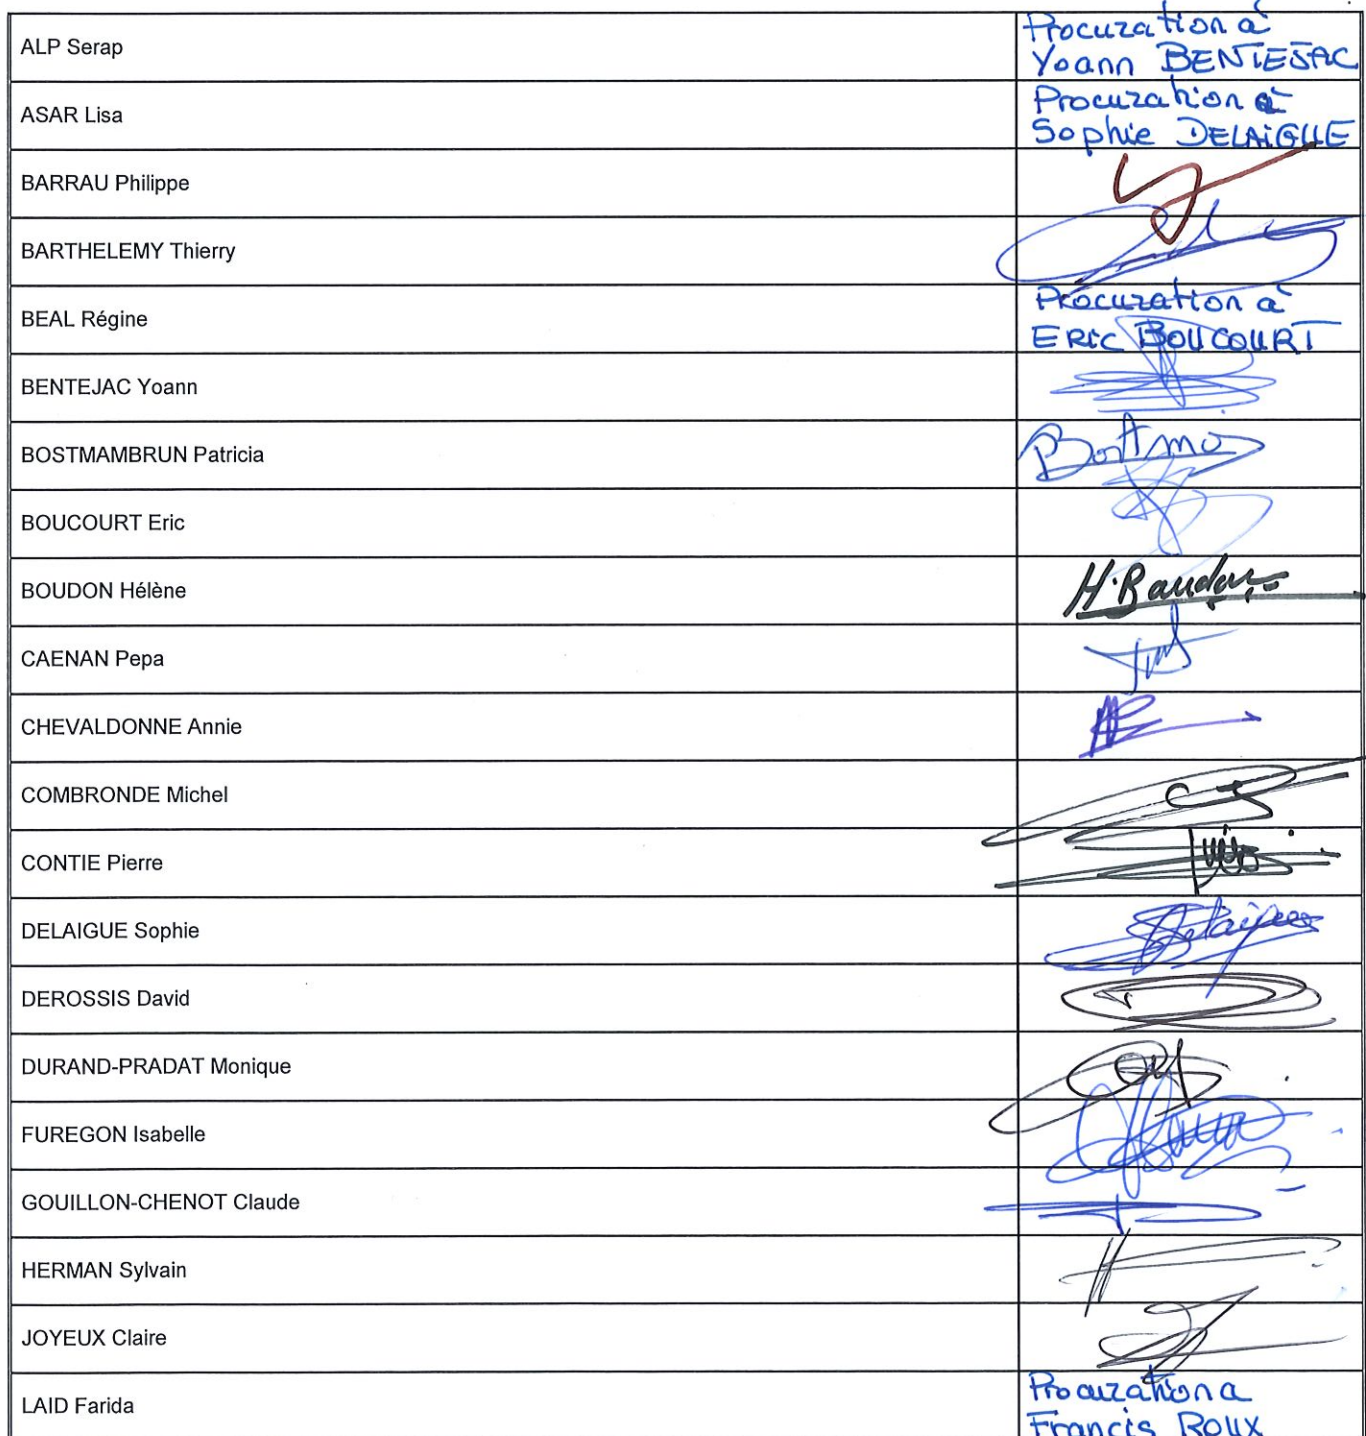 ALP Serap
Procuration à
Yoann BENTEJAC
ASAR Lisa
Procuration à
Sophie DELAIGUE
BARRAU Philippe
BARTHELEMY Thierry
BEAL Régine
Procuration à
ERIC BOUCOURT
BENTEJAC Yoann
BOSTMAMBRUN Patricia
BOUCOURT Eric
BOUDON Hélène
H. Boudon
CAENAN Pepa
CHEVALDONNE Annie
COMBRONDE Michel
CONTIE Pierre
DELAIGUE Sophie
DEROSSIS David
DURAND-PRADAT Monique
FUREGON Isabelle
GOUILLON-CHENOT Claude
HERMAN Sylvain
JOYEUX Claire
LAID Farida
Procuration a
Francis ROUX